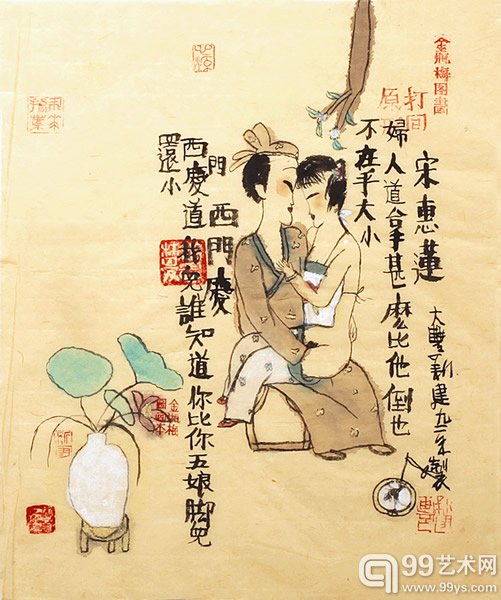 金瓶梅图画
打回
原
宋惠蓮
大豐新建九二年製
婦人道拿甚麼比他倒也
不在乎大小
西門慶
西門慶道我兒誰知道你比你五娘脚兒
還小
金瓶梅
99艺术网
www.99ys.com